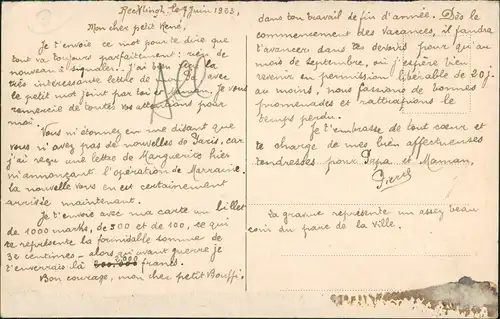 Recklingh, le 7 Juin 1923,
Mon cher petit René,
Je t'envoie ce mot pour te dire que
tout va toujours parfaitement : rien de
nouveau à signaler. J'ai bien reçu la
très intéressante lettre de Papa avec
le petit mot joint par toi et Maman. Je vous
remercie de toutes vos attentions pour
moi.
Vous m'étonnez en me disant que
vous n'avez pas de nouvelles de Paris, car
j'ai reçu une lettre de Marguerite hier
m'annonçant l'opération de Marraine.
La nouvelle vous en est certainement
arrivée maintenant.
Je t'envoie avec ma carte un billet
de 1000 marks, de 500 et de 100, ce qui
te représente la formidable somme de
32 centimes – alors qu'avant guerre je
t'enverrais là 2.000 francs.
Bon courage, mon cher petit Bouffi,
dans ton travail de fin d'année. Dès le
commencement des vacances, il faudra
t'avancer dans tes devoirs pour qu'au
mois de septembre, où j'espère bien
revenir en permission libérable de 20 j.
au moins, nous fassions de bonnes
promenades et rattrapions le
temps perdu.
Je t'embrasse de tout cœur et
te charge de mes bien affectueuses
tendresses pour Papa et Maman,
Pierre
La gravure représente un assez beau
coin du parc de la ville.